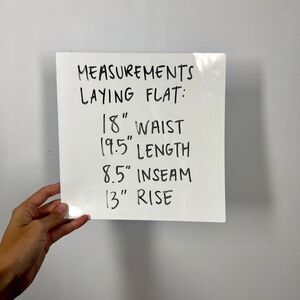 MEASUREMENTS
LAYING FLAT:
18" WAIST
19.5" LENGTH
8.5" INSEAM
13" RISE